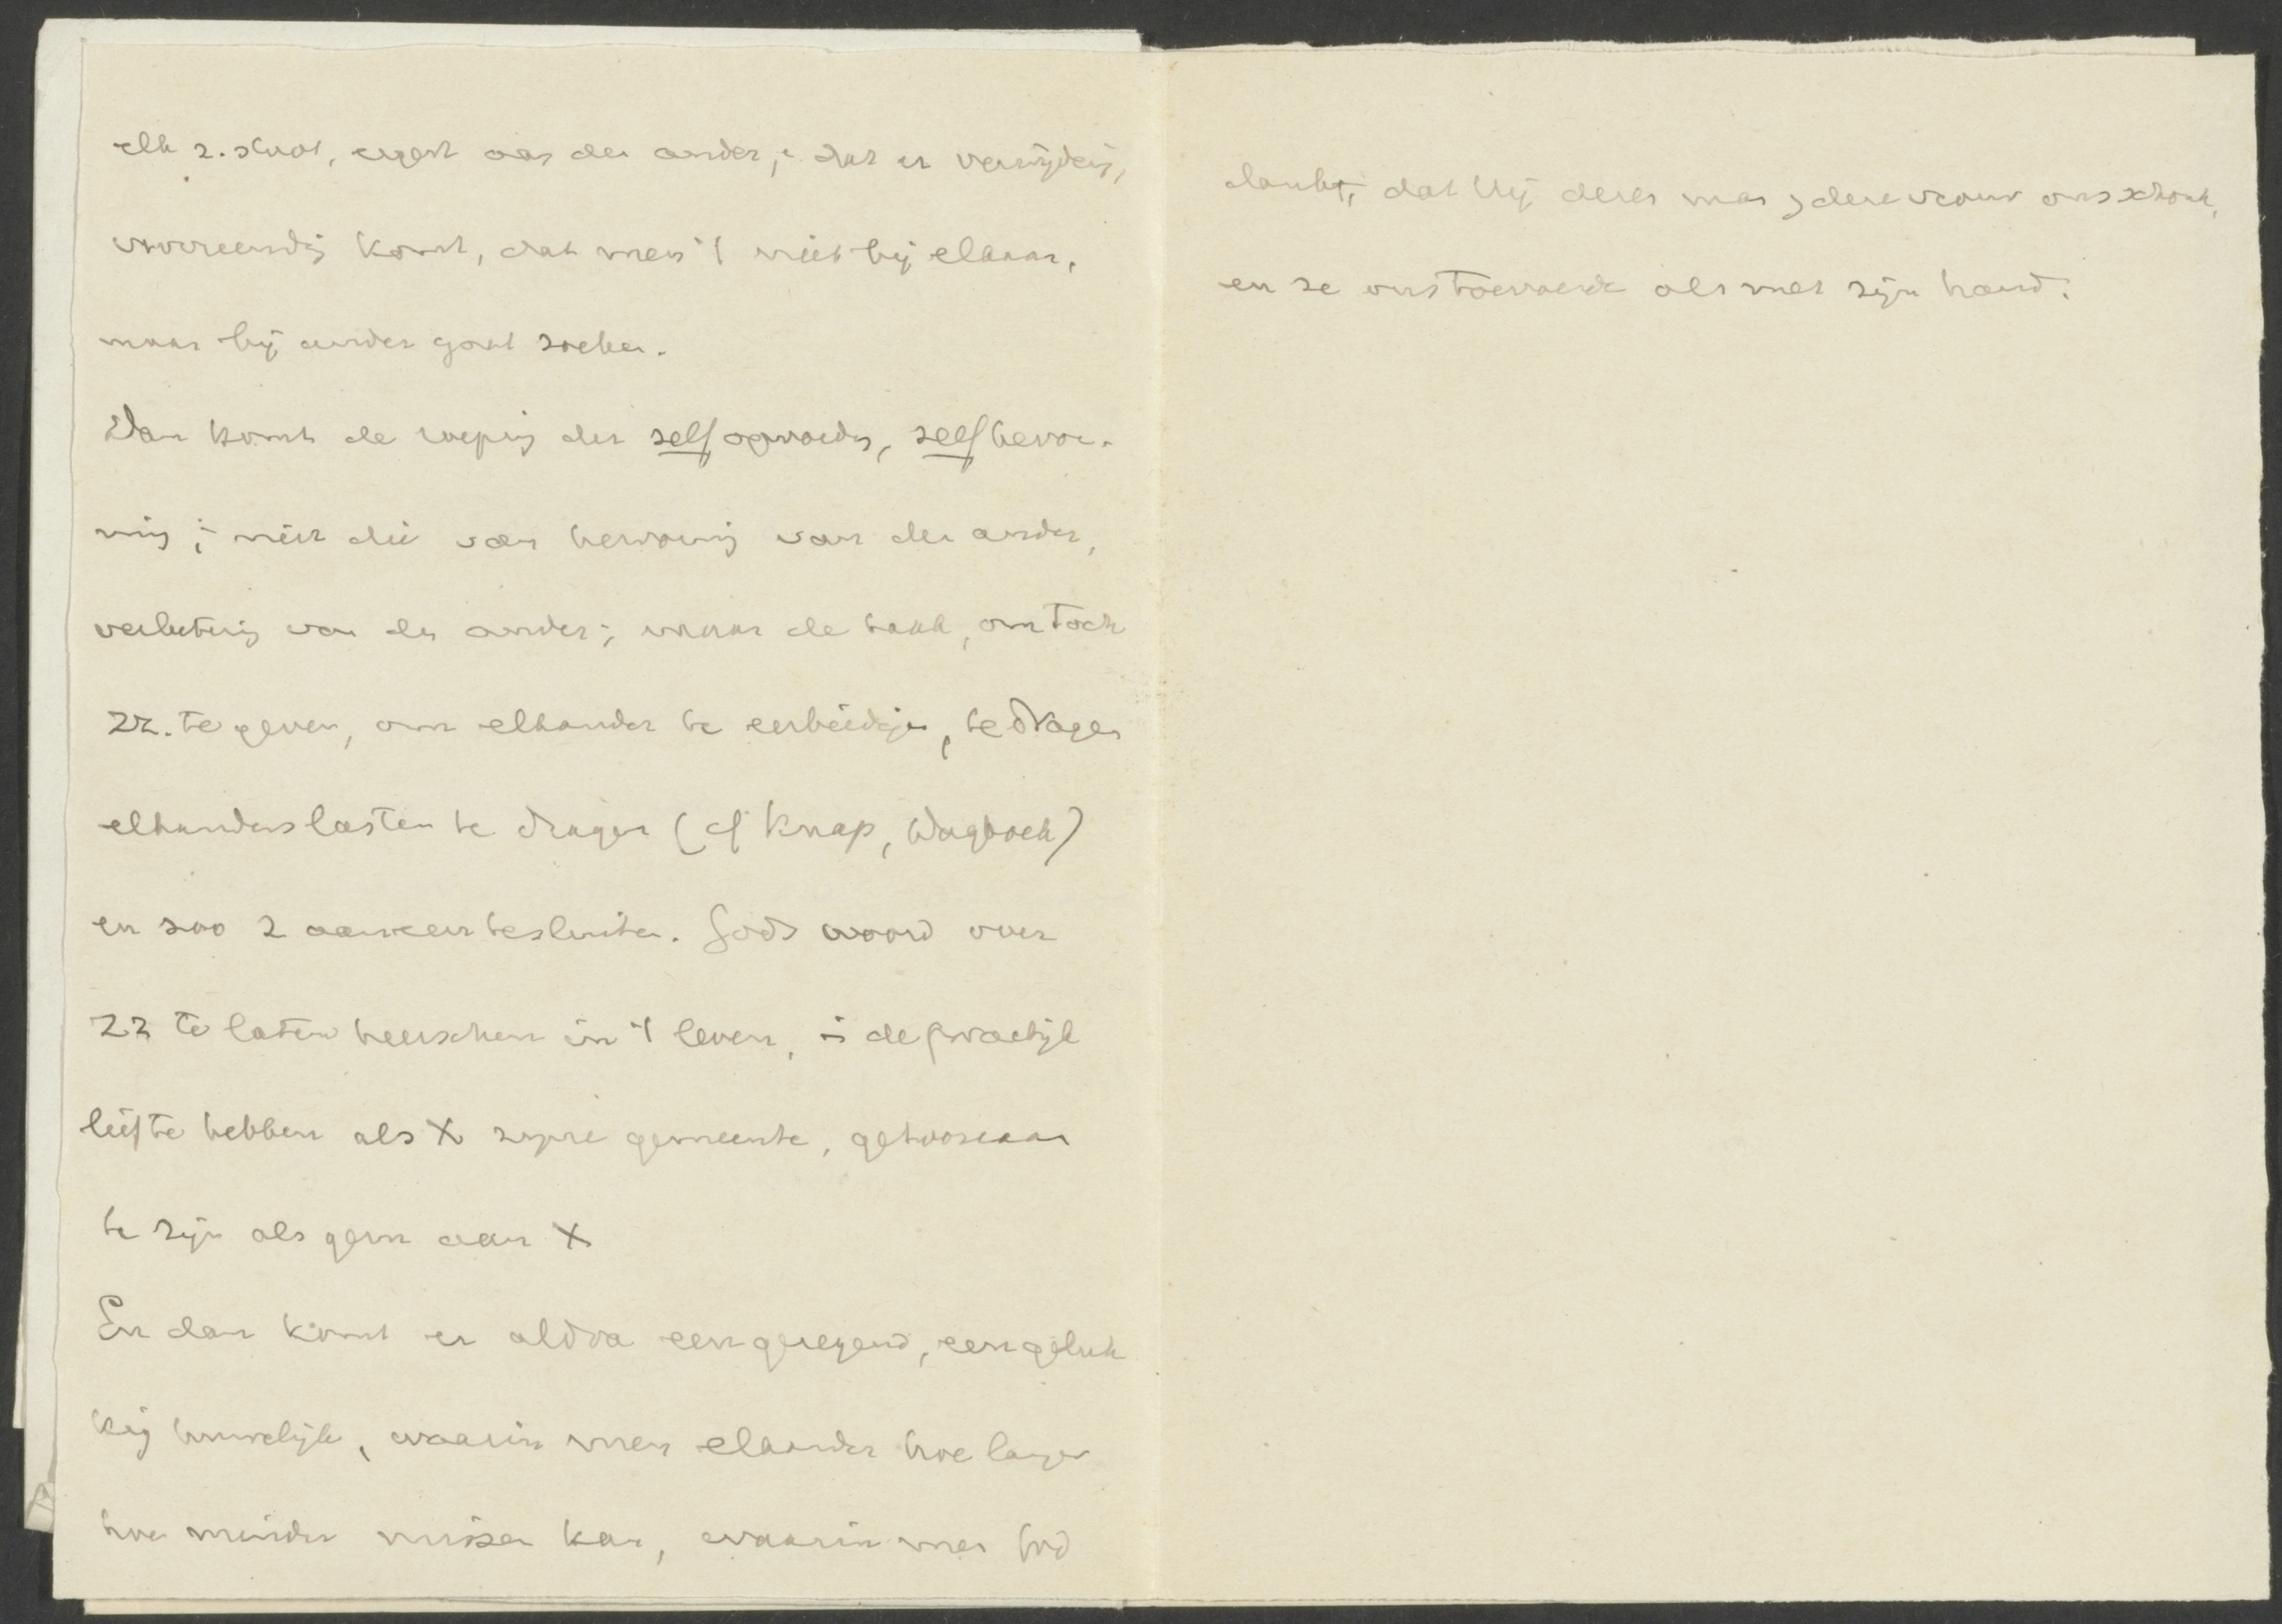 elk z. stoot, ergert aan den ander, en dat er verwijdering,
vervreemding komt, dat men 't niet bij elkaar,
maar bij ander gaat zoeken.
Dan komt de roeping der zelfopvoeding, zelfhervor-
ming; niet die van hervorming van den ander,
verbetering van den ander; maar de taak, om toch
zz. te geven, om elkander te eerbiedigen, te dragen
elkanders lasten te dragen (cf Knap, Dagboek)
en zoo z aaneen te sluiten. Gods woord over
zz te laten heerschen in 't leven, in de practijk
lief te hebben als X zijne gemeente, gehoorzaam
te zijn als gem aan X
En dan komt er aldra een gezegend, een geluk
kig huwelijk, waarin men elkander hoe langer
hoe minder missen kan, waarin men God
dankt, dat Hij dezen man, deze vrouw ons schonk,
en ze ons toevoerde als met zijn hand.